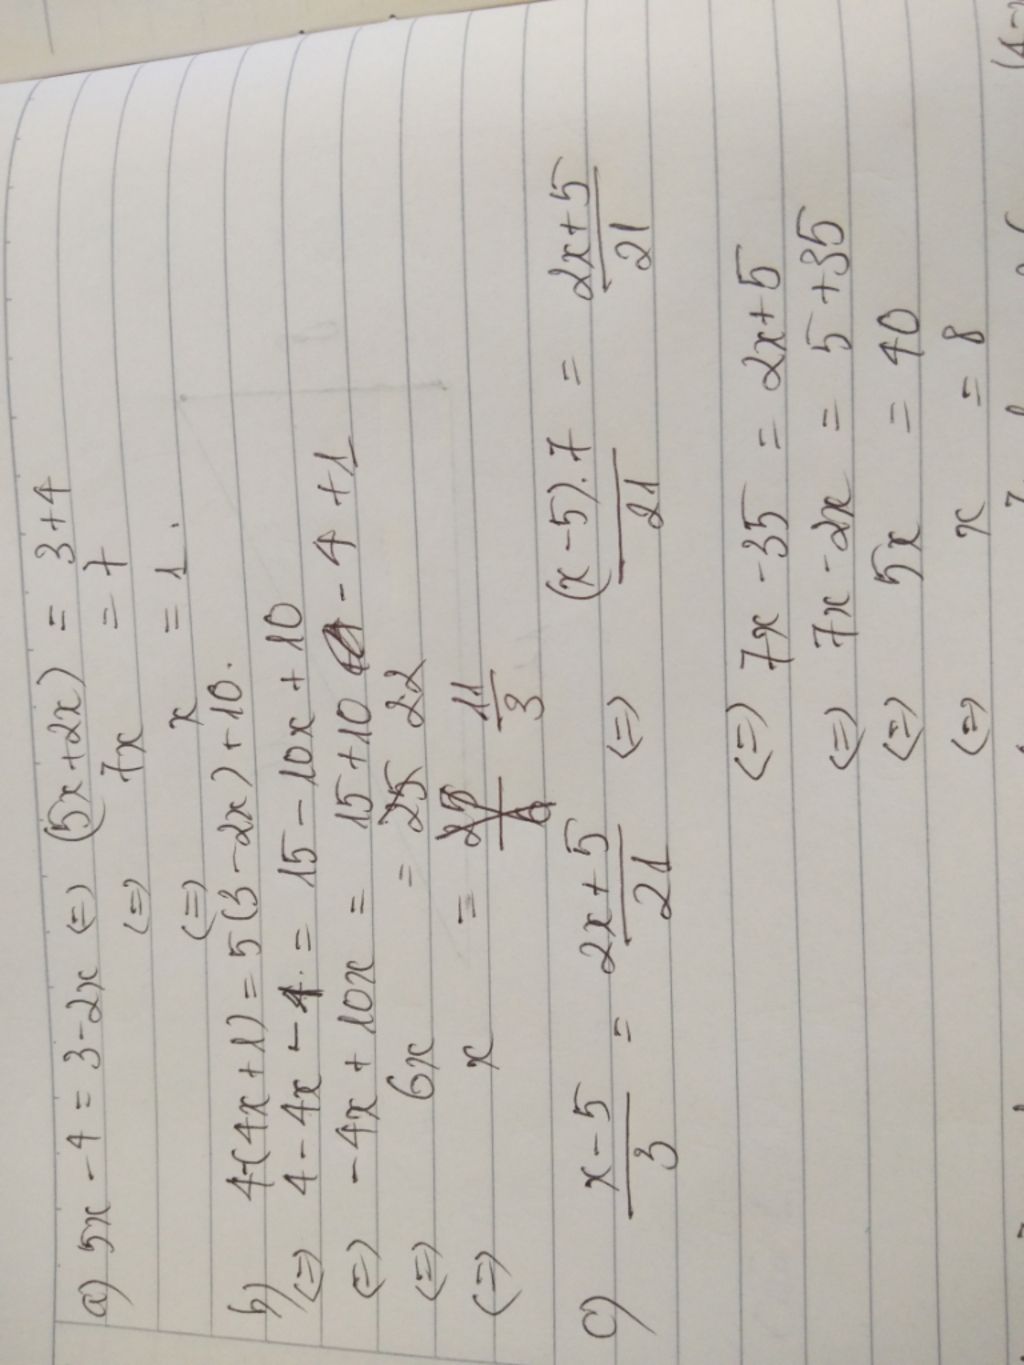 a) 5x - 4 = 3 - 2x (=) (5x + 2x) = 3 + 4
(=) 7x = 7
(=) x = 1.
b) 4-(4x + 1) = 5(3 - 2x) + 10.
(=) 4 - 4x - 1 = 15 - 10x + 10
(=) - 4x + 10x = 15 + 10 - 4 + 1
(=) 6x = 25 22
(=) x = 25/6 11/3
c) x - 5 / 3 = 2x + 5 / 21 (=) (x - 5).7 / 21 = 2x + 5 / 21
(=) 7x - 35 = 2x + 5
(=) 7x - 2x = 5 + 35
(=) 5x = 40
(=) x = 8